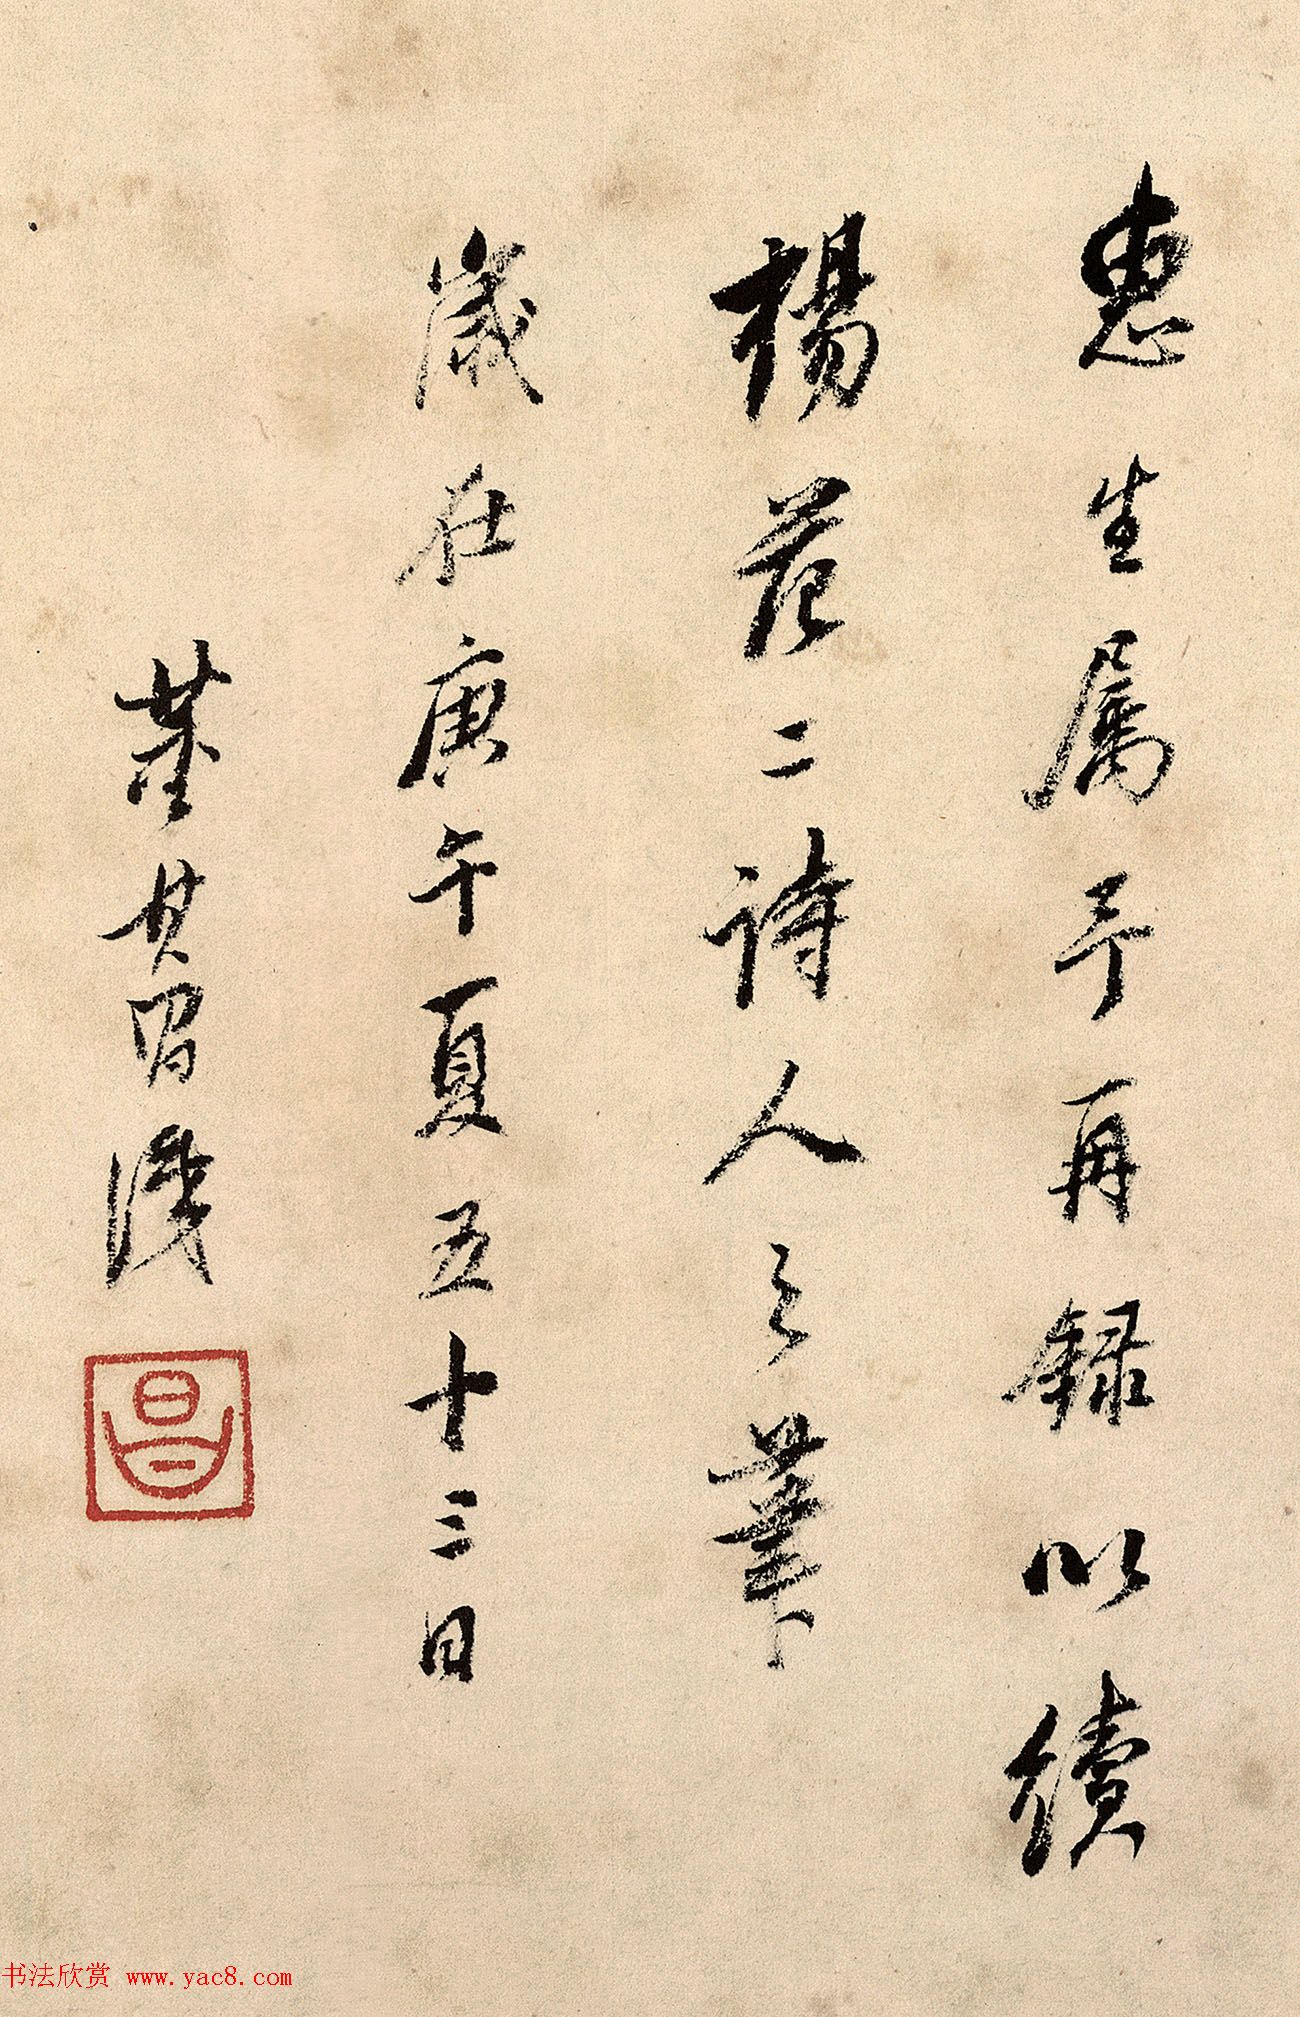 惠生屬予再録以續
楊范二詩人之筆
歲在庚午夏五十三日
董其昌識
昌
书法欣赏 www.yac8.com